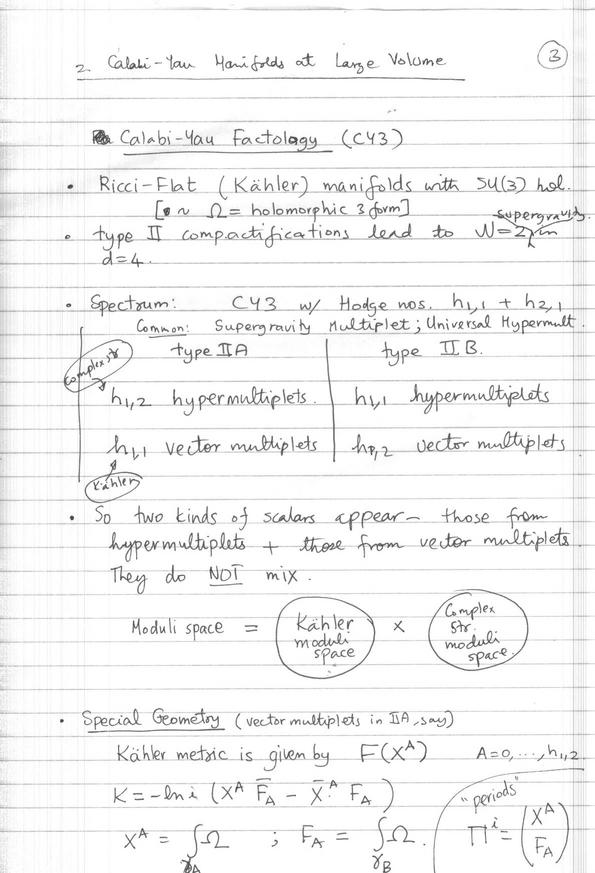 3
2. Calabi-Yau Manifolds at Large Volume
Calabi-Yau Factology (CY3)
• Ricci-Flat (Kähler) manifolds with SU(3) hol.
[ ~ Ω = holomorphic 3 form]
supergravity
• type II compactifications lead to N=2 in
d=4.
• Spectrum: CY3 w/ Hodge nos. h1,1 + h2,1
Common: Supergravity Multiplet; Universal Hypermult.
type IIA type IIB.
Complex str
h1,2 hypermultiplets. h1,1 hypermultiplets
h1,1 vector multiplets h1,2 vector multiplets
Kähler
• So two kinds of scalars appear - those from
hypermultiplets + those from vector multiplets.
They do NOT mix.
Moduli space = Kähler moduli space × Complex str. moduli space.
• Special Geometry (vector multiplets in IIA, say)
Kähler metric is given by F(X^A) A=0,...,h1,2
K = -ln i (X^A F̄_A - X̄^A F_A)
"periods"
X^A = ∫_γA Ω ; F_A = ∫_γB Ω. Π^i = (X^A F_A)